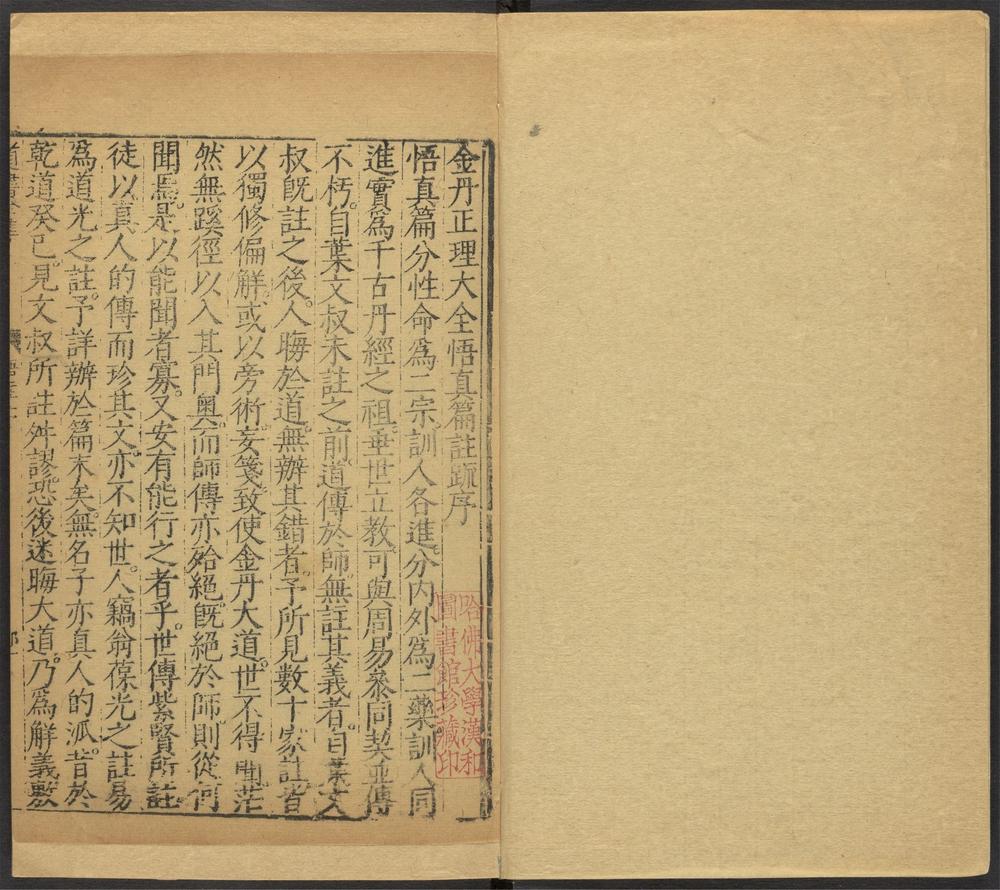 金丹正理大全悟真篇註疏序
悟真篇分性命爲二宗。訓人各進。分内外爲二藥。訓人同
進。實爲千古丹經之祖。垂世立教。可與周易參同契並傳
不朽。自葉文叔未註之前。道傳於師。無註其義者。自葉文
叔旣註之後。人晦於道。無辦其錯者。予所見數十家註。皆
以獨修偏解。或以旁術妄箋。致使金丹大道。世不得聞。茫
然無蹊徑以入其門奧。而師傳亦殆絕。旣絕於師。則從何
聞焉。是以能聞者寡。又安有能行之者乎。世傳紫賢所註。
徒以真人的傳而珍其文。亦不知世人竊翁葆光之註。易
爲道光之註。予詳辦於篇末矣。無名子亦真人的派。昔於
乾道癸巳。見文叔所註舛謬。恐後迷晦大道。乃爲解義敷
哈佛大學漢和
圖書館珍藏印